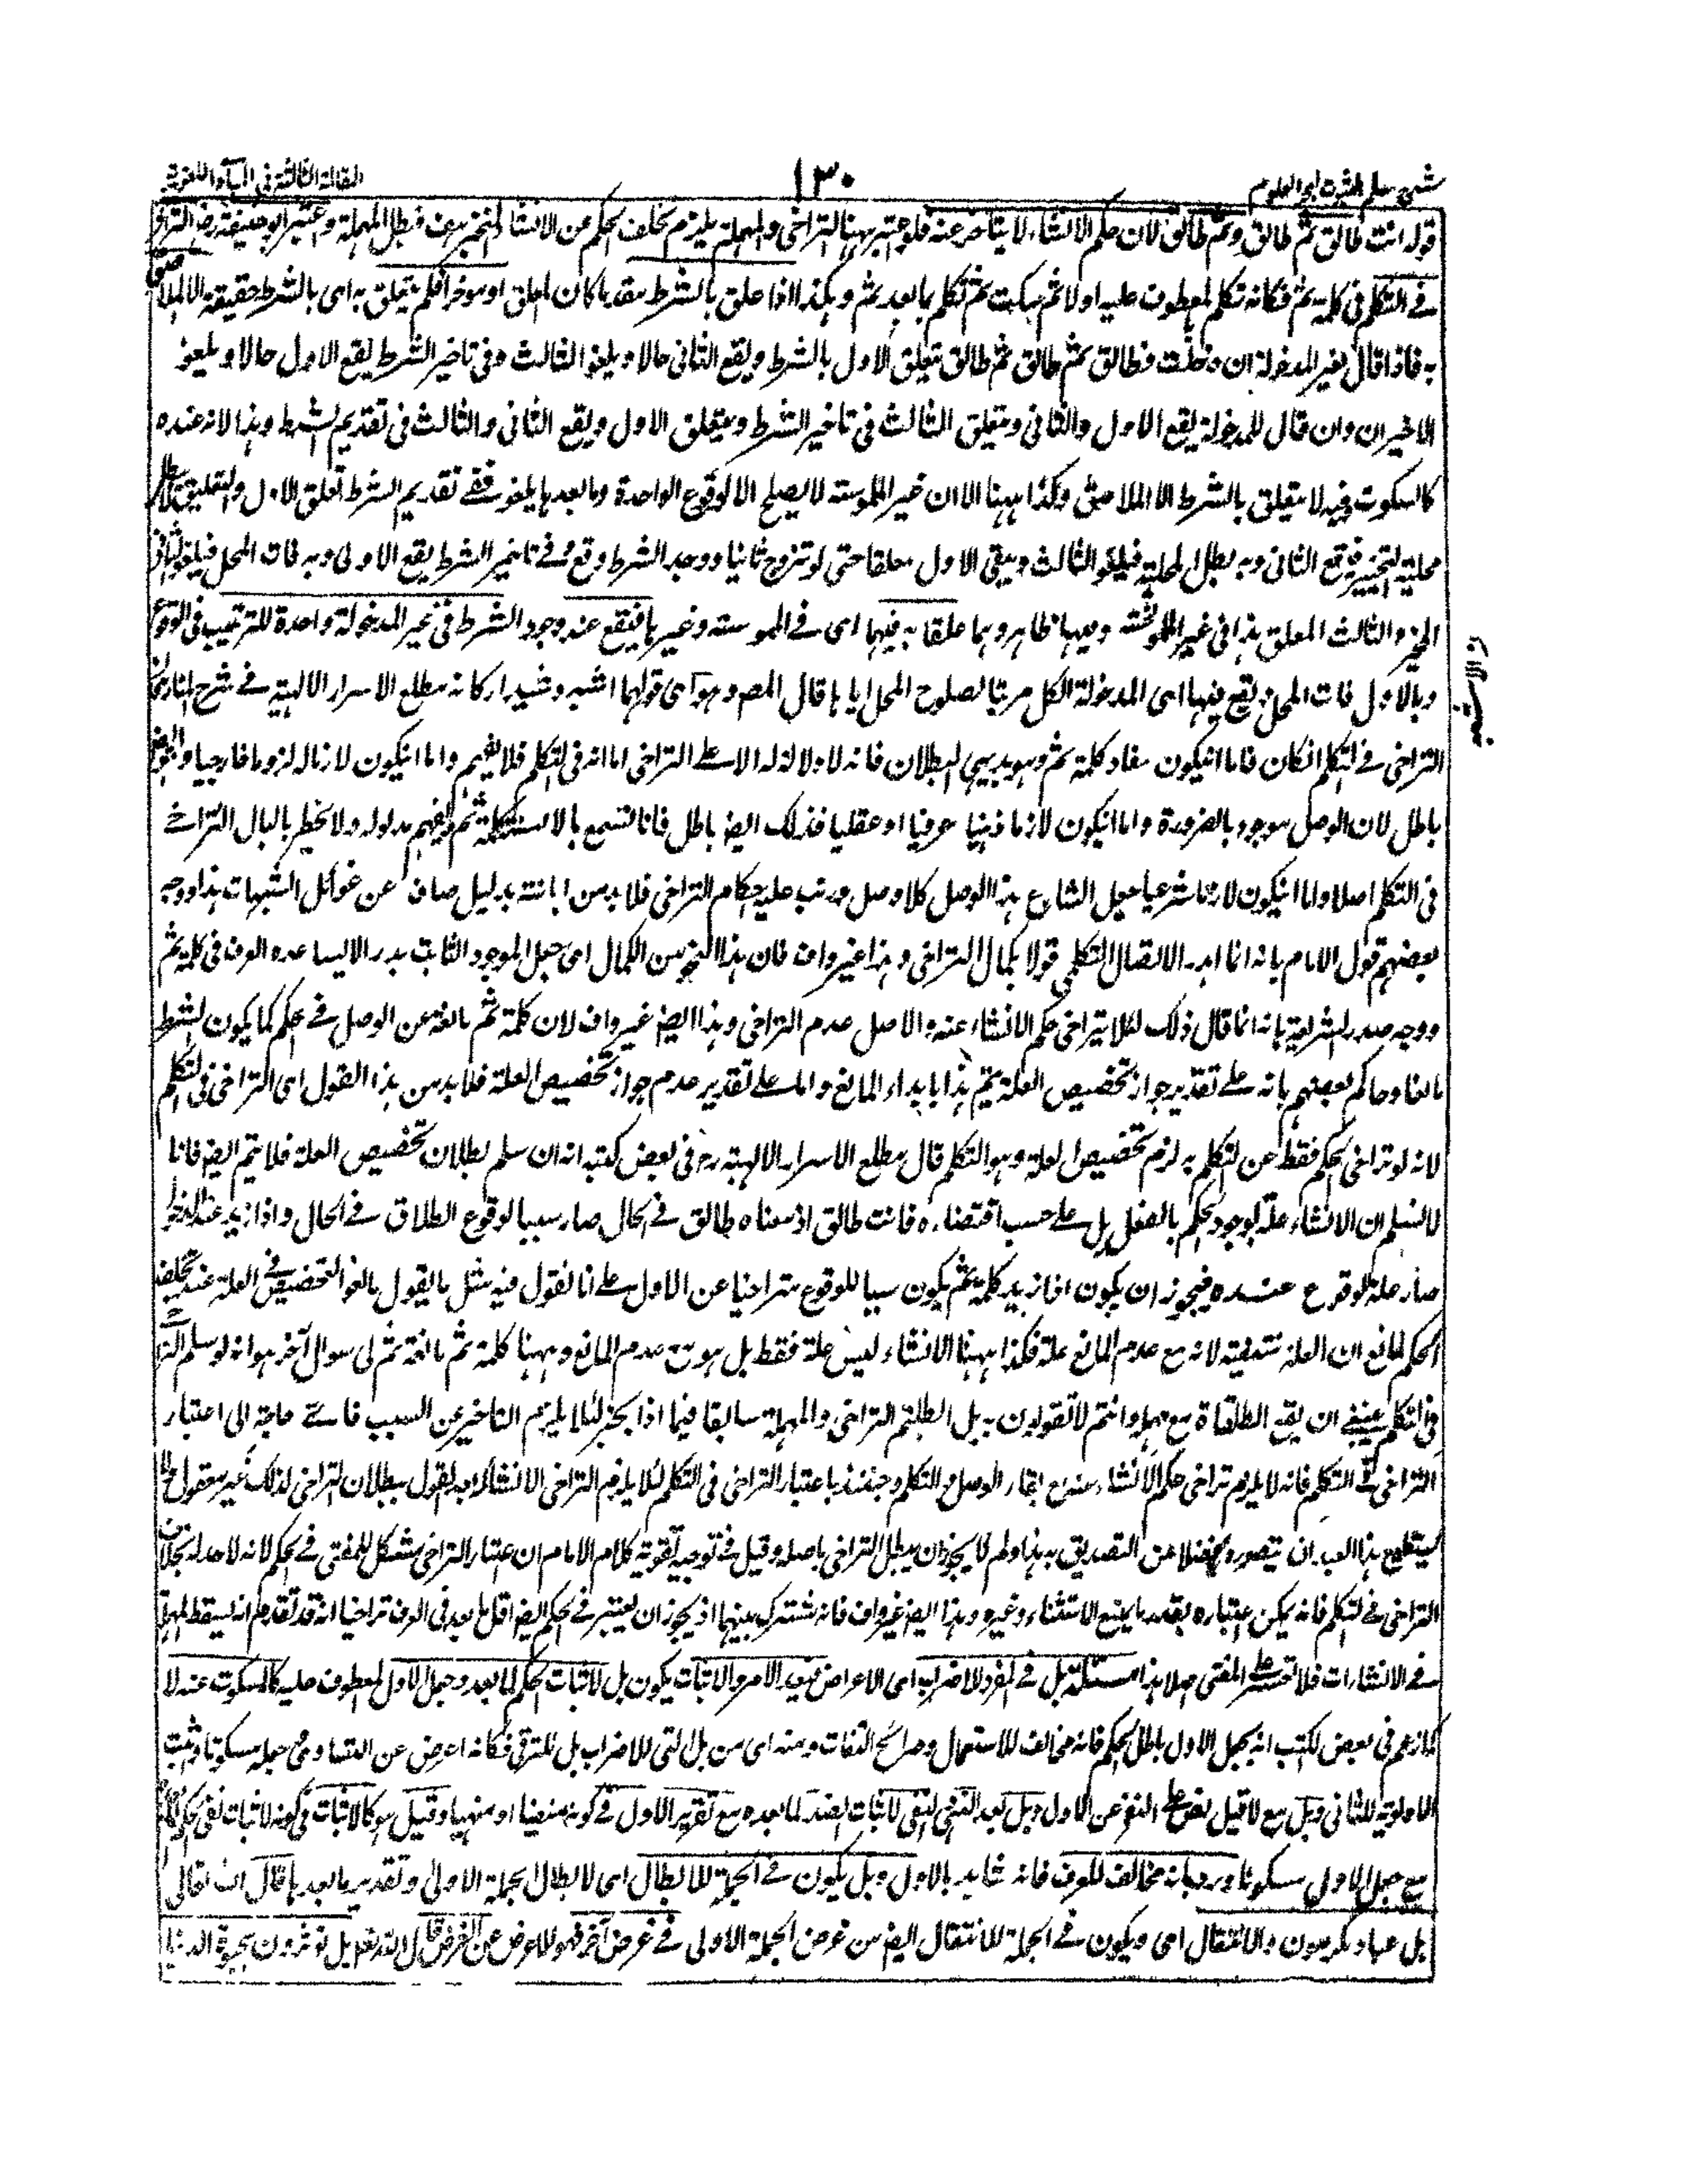 شرح مسلم الثبوت لبحر العلوم
١٣٠
المقالة الثالثة فى المبادى اللغوية
قوله انت طالق ثم طالق وثم طالق لان حكم الانشاء لا يتاخر عنه فلو اعتبر ههنا التراخى والمهلة يلزم تخلف الحكم عن الانشاء المنجز هف فبطل المهلة واعتبر ابو حنيفة رض التراخى
فى التكلم فى كلمة ثم فكانه تكلم المعطوف عليه اولا ثم سكت ثم تكلم بما بعد ثم وهكذا اذا علق بالشرط مقدما كان المعلق او موخرا فلم يتعلق به اى بالشرط حقيقة الا الملاصق
به فاذا قال لغير المدخولة ان دخلت فطالق ثم طالق ثم طالق تعلق الاول بالشرط ويقع الثانى حالا ويلغو الثالث وفى تاخير الشرط يقع الاول حالا ويلغو
الاخيران وان قال للمدخولة يقع الاول والثانى ويتعلق الثالث فى تاخير الشرط ويتعلق الاول ويقع الثانى والثالث فى تقديم الشرط وهذا لانه عنده
كالسكوت وفيه لا يتعلق بالشرط الا الملاصق وكذا ههنا الا ان غير الملموسة لا يصلح الا لوقوع الواحدة وما بعدها يلغو ففى تقديم الشرط تعلق الاول والتعليق لا يبطل
محلية التنجيز فيقع الثانى وبه بطل المحلية فيلغو الثالث ويبقى الاول معلقا حتى لو تزوج ثانيا ووجد الشرط وقع وفى تاخير الشرط يقع الاولى وبه فات المحل فيلغو الثانى
المنجز والثالث المعلق هذا فى غير الملموسة وفيها ظاهر وهما علقا به فيهما اى فى الملموسة وغيرها فيقع عند وجود الشرط فى غير المدخولة واحدة للترتيب فى الوقوع
وبالاول فات المحل ويقع فيها اى المدخولة الكل مرتبا لصلوح المحل اياها قال المص وهو اى قولهما اشبه وشيد اركانه مطلع الاسرار الالهية فى شرح المنار بان
التراخى فى التكلم انكان فاما انيكون مفاد كلمة ثم وهو بديهى البطلان فانه لا دلالة له الا على التراخى اما انه فى التكلم فلا يفهم واما انيكون لازما له لزوما خارجيا وهو ايض
باطل لان الوصل موجود بالضرورة واما انيكون لازما ذهنيا عرفيا او عقليا فذلك ايض باطل فانا نسمع بالالسنة كلمة ثم ونفهم مدلوله ولا يخطر بالبال التراخى
فى التكلم اصلا واما انيكون لازما شرعيا جعل الشارع هذا الوصل كلا وصل ورتب عليه احكام التراخى فلا بد من ابانته بدليل صاف عن غوائل الشبهات هذا ووجه
بعضهم قول الامام بانه انما اهدر الاتصال التكلمى قولا بكمال التراخى وهذا غير واف فان هذا النحو من الكمال اى جعل الموجود الثابت هدرا لا يساعده العرف فى كلمة ثم
ووجه صدر الشريعة بانه انما قال ذلك لئلا يتراخى حكم الانشاء عنه والاصل عدم التراخى وهذا ايض غير واف لان كلمة ثم مانعة عن الوصل فى الحكم كما يكون الشرط
مانعا وحاكم بعضهم بانه على تقدير جواز تخصيص العلة يتم هذا بابداء المانع واما على تقدير عدم جواز تخصيص العلة فلا بد من هذا القول اى التراخى فى التكلم
لانه لو تراخى الحكم فقط عن التكلم به لزم تخصيص العلة وهو التكلم قال مطلع الاسرار الالهية ره فى بعض كتبه انه ان سلم بطلان تخصيص العلة فلا يتم ايض فانا
لا نسلم ان الانشاء علة لوجود الحكم بالفعل بل على حسب اقتضاءه فانت طالق اذ معناه طالق فى الحال صار سببا لوقوع الطلاق فى الحال واذا زيد عند الدخول
صار علة للوقوع عنده فيجوز ان يكون اذا زيد كلمة ثم يكون سببا للوقوع متراخيا عن الاول على انا نقول فيه مثل ما يقول مانعو التخصيص فى العلة عند تخلف
الحكم لمانع ان العلة منتفية لانه مع عدم المانع علة فكذا ههنا الانشاء ليس علة فقط بل هو مع عدم المانع وههنا كلمة ثم مانعة ثم لى سوال آخر هو انه لو سلم التراخى
فى التكلم ينبغى ان يقع الطلقات مع مهلة وانتم لا تقولون به بل ابطلتم التراخى والمهلة سابقا فيما اذا نجز لئلا يلزم التاخير عن السبب فاى حاجة الى اعتبار
التراخى فى التكلم فانه لا يلزم تراخى حكم الانشاء عنه مع اهدار الوصل والتكلم وحينئذ باعتبار التراخى فى التكلم لئلا يلزم التراخى الانشاء بعد القول ببطلان التراخى لذلك غير معقول
يستطيع هذا العبد ان يتصوره فضلا عن التصديق به هذا ولم لا يجوز ان يبطل التراخى باصله وقيل فى توجيه تقوية كلام الامام ان اعتبار التراخى مشكل للمفتى فى الحكم لانه لا حد له بخلاف
التراخى فى التكلم فانه يمكن اعتباره بقدر ما يمنع الاستثناء وغيره وهذا ايض غير واف فانه مشترك بينهما اذ يجوز ان يعتبر فى الحكم ايض اقل ما يعد فى العرف تراخيا انه قد تقدم انه يسقط المهلة
فى الانشاءات فلا تعسر على المفتى اصلا هذا مسئلة بل فى المفرد للاضراب اى الاعراض فبعد الامر والاثبات يكون بل لاثبات الحكم لما بعد وجعل الاول المعطوف عليه كالمسكوت عنه لا
كما زعم فى بعض الكتب انه يجعل الاول باطل الحكم فانه مخالف للاستعمال وصرائح الثقات ومنه اى من بل التى للاضراب بل للترقى فكانه اعرض عن التساوى جعله مسكوتا واثبت
الاولوية للثانى وبل مع لا قيل نص على النفى عن الاول وبل بعد النفى والنهى لاثبات الضد لما بعده مع تقرير الاول فى كونه منفيا او منهيا وقيل هو كالاثبات فى كونه لاثبات نفى الحكم
مع جعل الاول مسكوتا ورد بانه مخالف للعرف فانه شاهد بالاول وبل يكون فى الجملة للابطال اى لابطال الجملة الاولى وتقدير ما بعدها قال الله تعالى
بل عباد مكرمون والانتقال اى ويكون فى الجملة للانتقال ايض من غرض الجملة الاولى فى غرض آخر فهو للاعراض عن الغرض قال الله تعلى بل تؤثرون الحيوة الدنيا